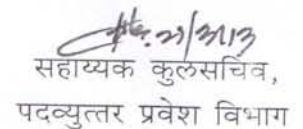 सहाय्यक कुलसचिव,
पदव्युत्तर प्रवेश विभाग